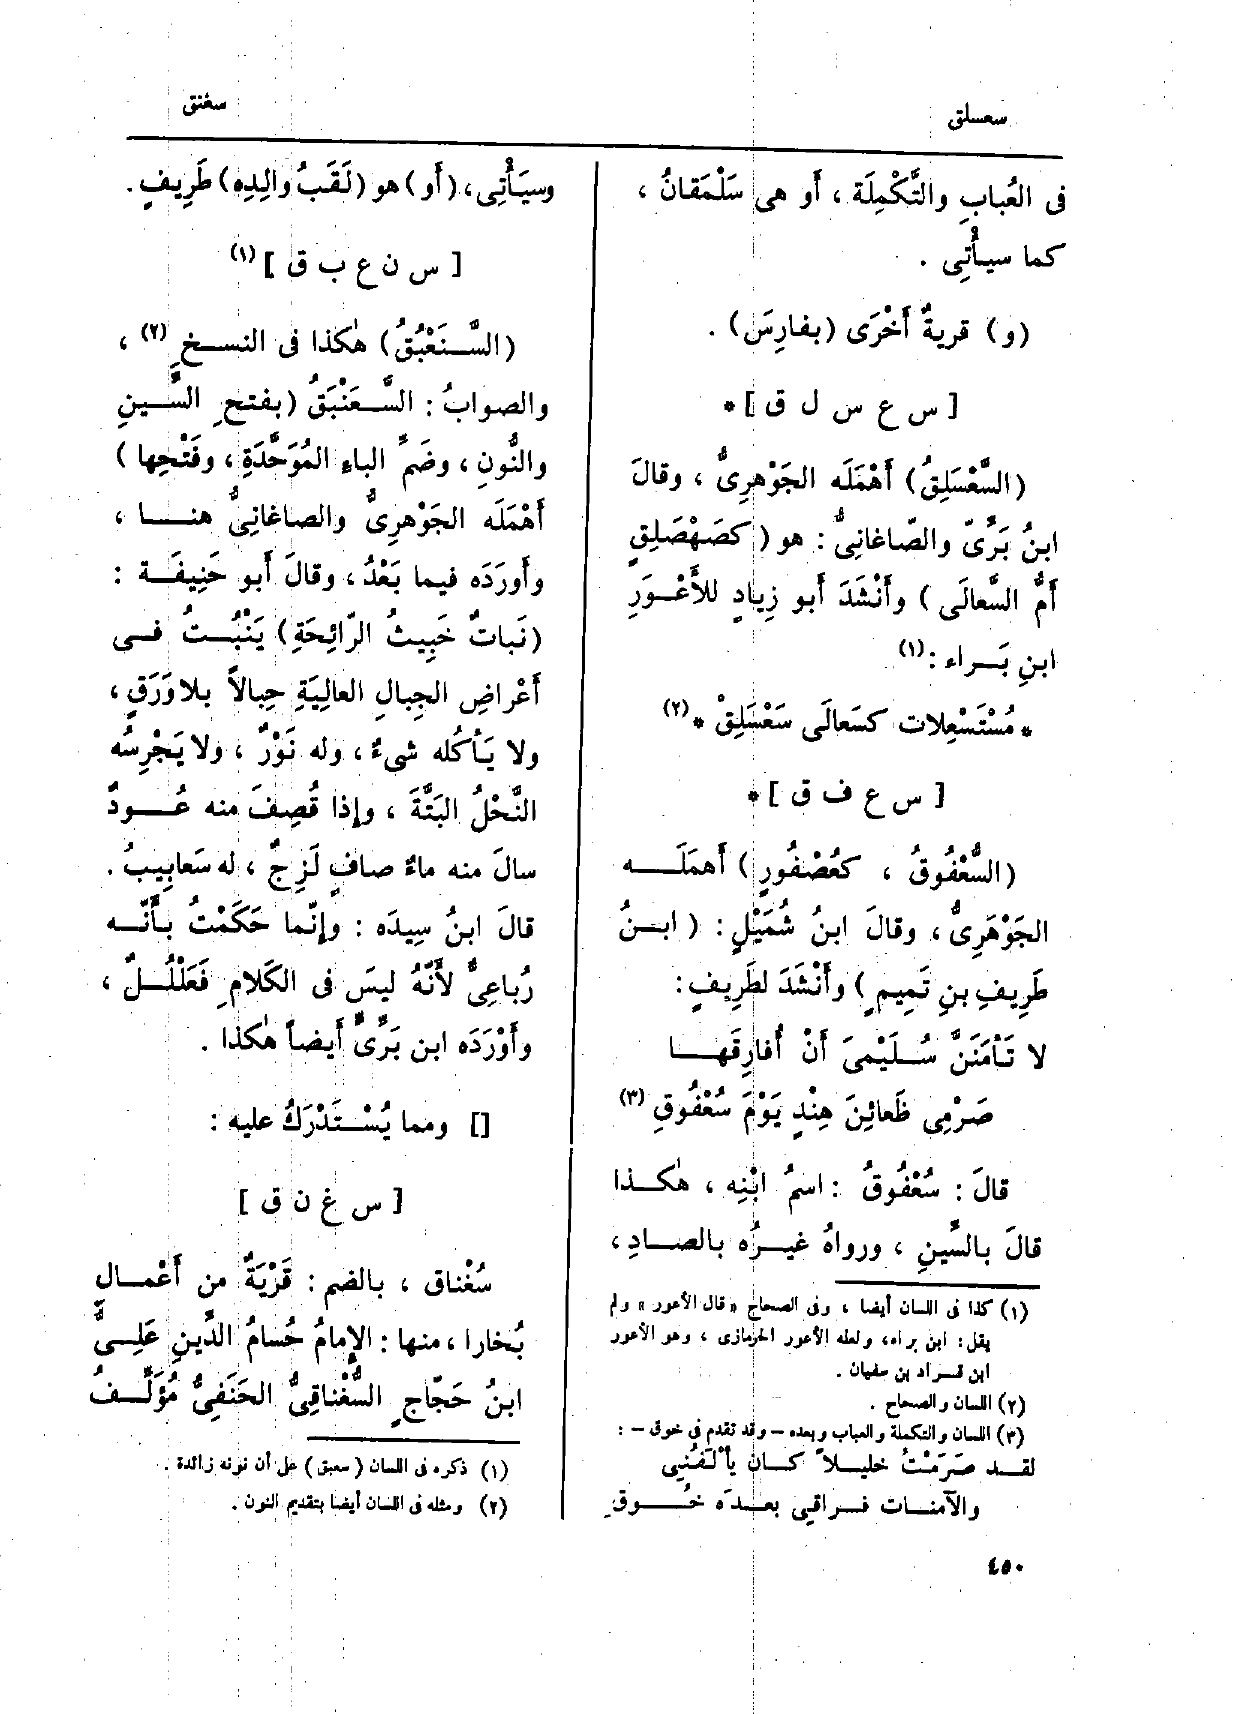 سعسلق
سغنق
فى العُبابِ والتَّكْمِلَة ، أَو هى سَلْمَقانُ ،
كما سيأْتِى .
(و) قريةٌ أُخْرَى (بفارِسَ) .
[ س ع س ل ق ] *
(السَّعْسَلِقُ) أَهْمَلَه الجَوْهرِىُّ ، وقالَ
ابنُ بَرِّىّ والصّاغانِىُّ : هو (كصَهْصَلِقٍ
أُمُّ السَّعالَى) وأَنْشَدَ أَبو زِيادٍ للأَعْوَرِ
ابنِ بَراء :(١)
* مُسْتَسْعِلات كسَعالَى سَعْسَلِقْ *(٢)
[ س ع ف ق ] *
(السُّعْفُوقُ ، كعُصْفُورٍ) أَهمَلَه
الجَوْهَرِىُّ ، وقالَ ابنُ شُمَيْلٍ : (ابنُ
طَرِيفِ بنِ تَمِيمٍ) وأَنْشَدَ لطَرِيفٍ :
لا تَأْمَنَنَّ سُلَيْمىَ أَنْ أُفارِقَها
صَرْمِى ظَعائِنَ هِنْدٍ يَوْمَ سُعْفُوقِ (٣)
قالَ : سُعْفُوقُ : اسمُ ابْنِه ، هٰكذا
قالَ بالسِّينِ ، ورواهُ غيرُه بالصادِ ،
(١) كذا فى اللسان أيضا ، وفى الصحاح « قال الأعور » ولم
يقل : ابن براه، ولعله الأعور الحرمازى ، وهو الأعور
ابن قراد بن سفيان .
(٢) اللسان والصحاح .
(٣) اللسان والتكملة والعباب وبعده – وقد تقدم فى خوق – :
لقد صَرَمْتُ خليلاً كان يأْلَفُنِى
والآمنات فراقى بعدَه خُوق
وسيَأْتِى ، (أَو) هو (لَقَبُ والِدِه) طَرِيفٍ .
[ س ن ع ب ق ] (١)
(السَّنَعْبُقُ) هٰكذا فى النسخِ (٢) ،
والصوابُ : السَّعَنْبَقُ (بفتحِ السِّينِ
والنُّونِ ، وضَمِّ الباءِ المُوَحَّدَةِ ، وفَتْحِها)
أَهْمَلَه الجَوْهرِىُّ والصاغانِىُّ هنا ،
وأَورَدَه فيما بَعْدُ ، وقالَ أَبو حَنِيفَة :
(نَباتٌ خَبِيثُ الرّائِحَةِ) يَنْبُتُ فى
أَعْراضِ الجِبالِ العالِيَةِ حِبالاً بلاوَرَقٍ ،
ولا يَأْكُله شىءٌ ، وله نَوْرٌ ، ولا يَجْرِسُه
النَّحْلُ البَتَّةَ ، وإذا قُصِفَ منه عُودٌ
سالَ منه ماءٌ صافٍ لَزِجٌ ، له سَعابِيبُ .
قالَ ابنُ سِيدَه : وإنّما حَكَمْتُ بأَنَّه
رُباعِىٌّ لأَنَّهُ ليسَ فى الكَلامِ فَعَلْلُلٌ ،
وأَوْرَدَه ابن بَرِّىٌّ أَيضاً هٰكذا .
[] ومما يُسْتَدْرَكُ عليه :
[ س غ ن ق ]
سُغْناق ، بالضم : قَرْيَةٌ من أَعْمال
بُخارا ، منها : الإِمامُ حُسامُ الدِّينِ عَلِىُّ
ابنُ حَجّاجٍ السُّغْناقِىُّ الحَنَفِىُّ مُؤَلِّفُ
(١) ذكره فى اللسان (سعبق) على أن نونه زائدة .
(٢) ومثله فى اللسان أيضا بتقديم النون .
٤٥٠